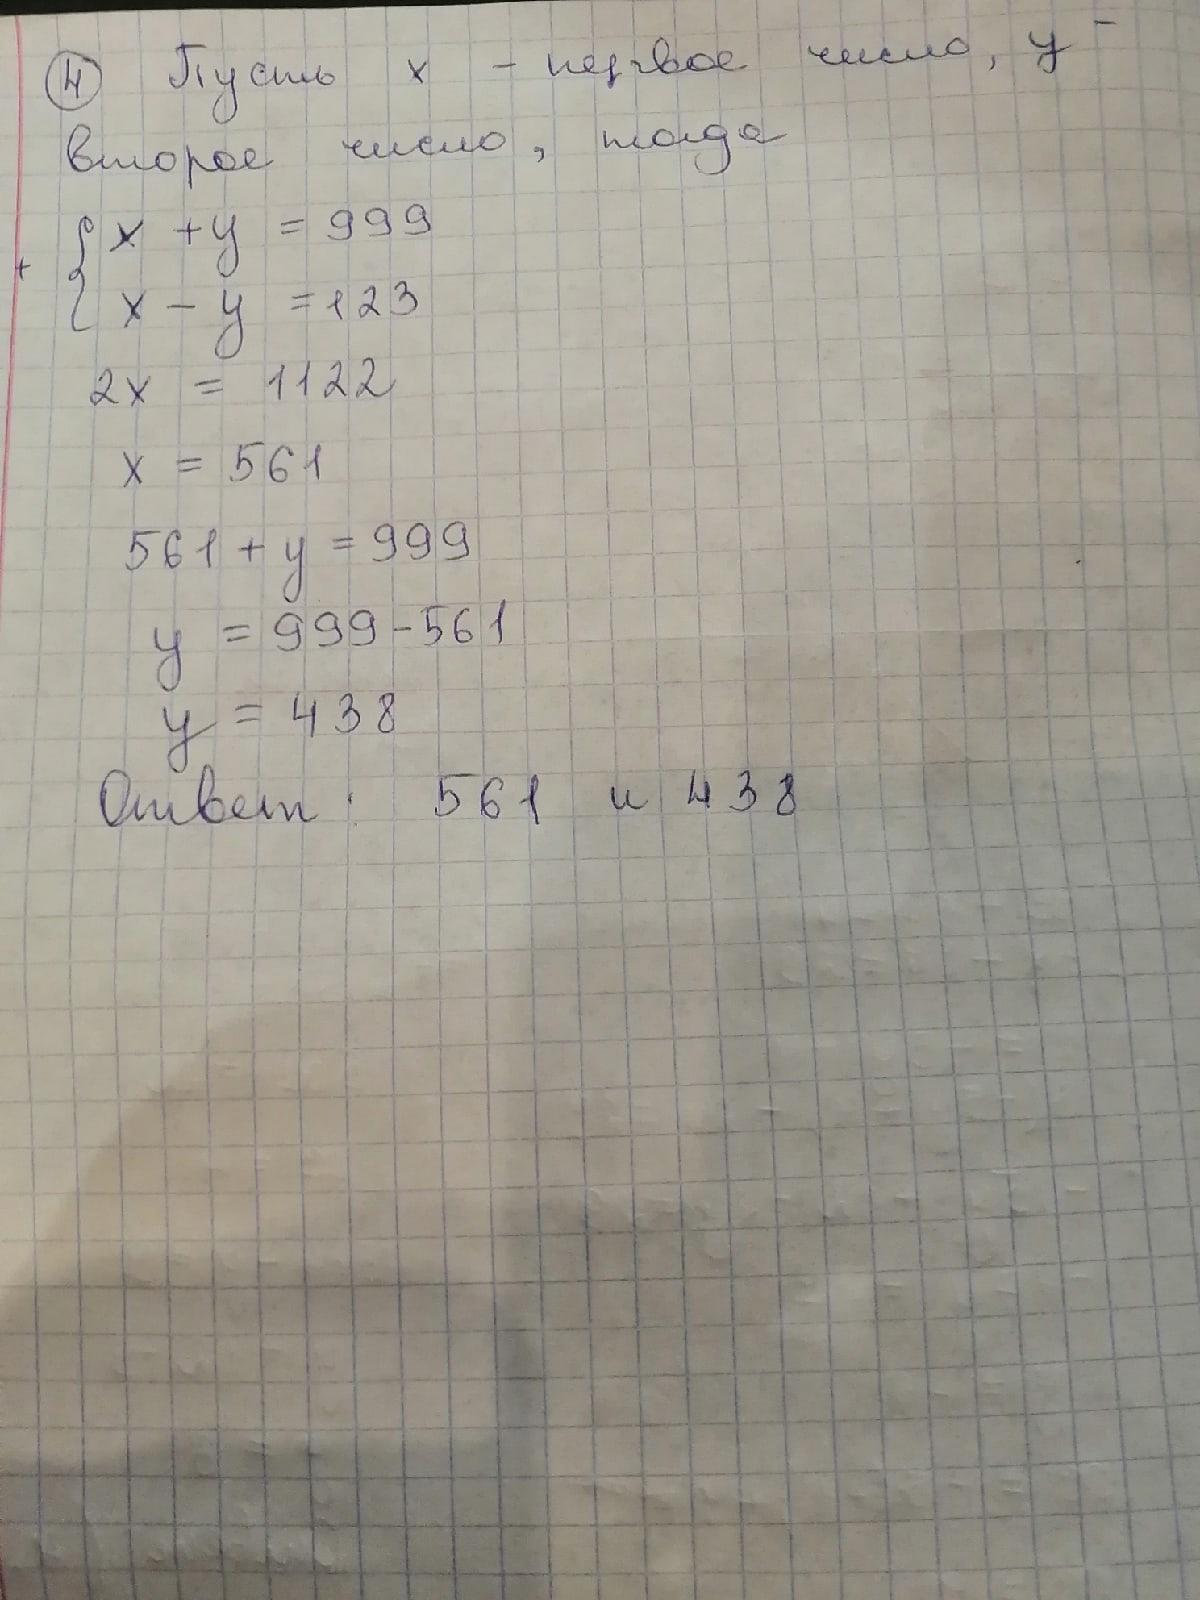 ④ Пусть x - первое число, y -
второе число, тогда
+ { x + y = 999
x - y = 123
2x = 1122
x = 561
561 + y = 999
y = 999 - 561
y = 438
Ответ: 561 и 438